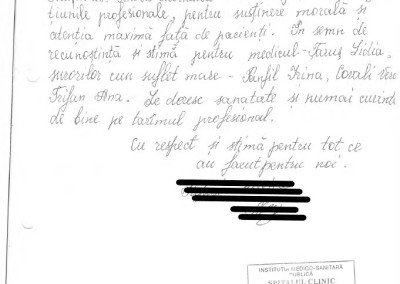 țiunile profesionale, pentru susținere morală și
atenția maximă față de pacienți. În semn de
recunoștință și stimă pentru medicul - Țaruș Lidia,
surorilor cu suflet mare - Panfil Irina,
Trifan Ana. Le doresc sanatate și numai cuvinte
de bine pe tarîmul profesional.
Cu respect și stimă pentru tot ce
au facut pentru noi.
INSTITUȚIA MEDICO-SANITARĂ
PUBLICĂ
SPITALUL CLINIC